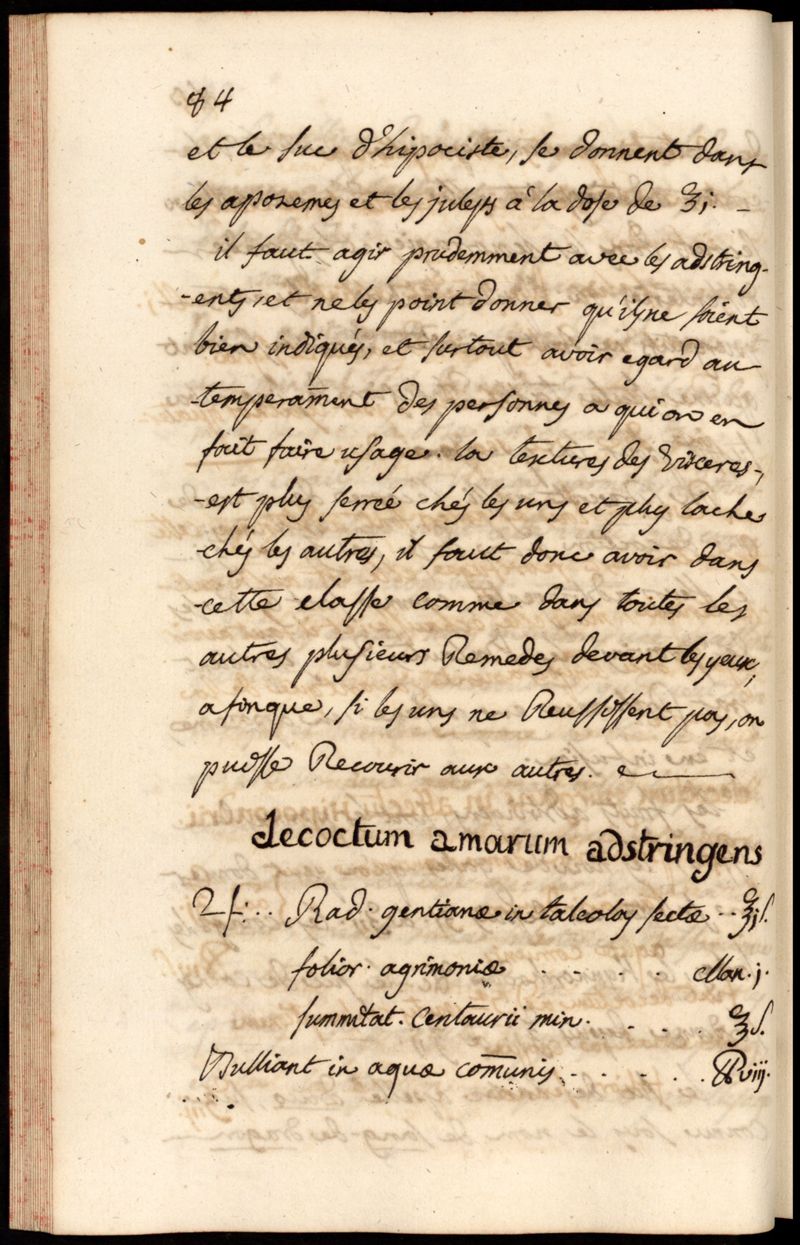 84
et le suc d'hipociste, se donnent dans
les apozemes et les juleps à la dose de ʒj. –
il faut agir prudemment avec les adstring-
-ents, et ne les point donner qu'ils ne soient
bien indiqués, et surtout avoir egard au
-temperam̄ent des personnes a qui on en
fait faire usage. la textures des visceres,
-est plus serreé chés les uns et plus lache
-chés les autres, il faut donc avoir dans
-cette classe comme dans toutes les
autres plusieurs Remedes devant les yeux,
afinque, si les uns ne Reussissent pas, on
puisse Recourir aux autres.
decoctum amarum adstringens
♃. .. Rad. gentianæ in taleolas sectæ .. ℥jſ.
folior. agrimoniæ . . . . . Man. j.
summitat. centaurii min. . . . . ℥ſ.
Bulliant in aquæ com̄unis . . . . . ℔viij.